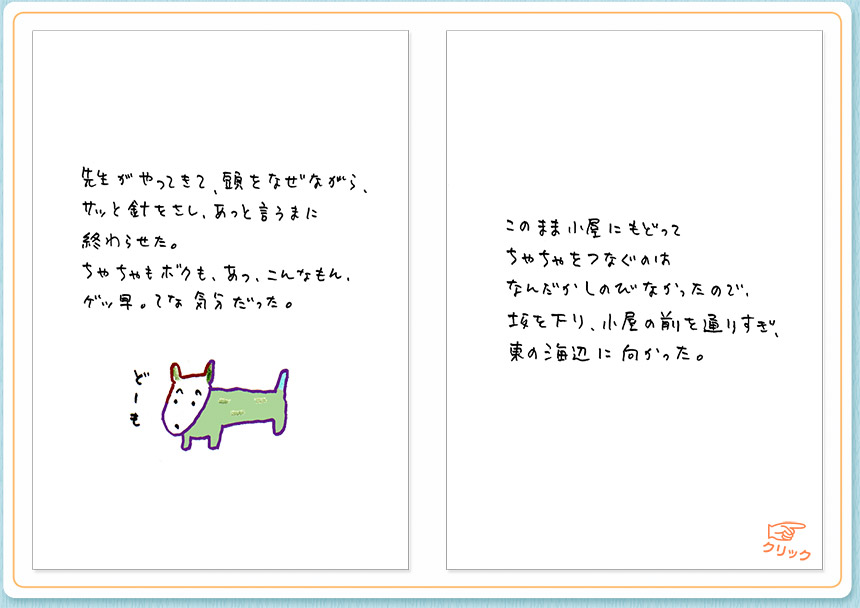 先生がやってきて、頭をなぜながら、
サッと針をさし、あっと言うまに
終わらせた。
ちゃちゃもボクも、あっ、こんなもん、
ゲッ早。てな気分だった。
どーも
このまま小屋にもどって
ちゃちゃをつなぐのは
なんだかしのびなかったので、
坂を下り、小屋の前を通りすぎ、
東の海辺に向かった。
クリック